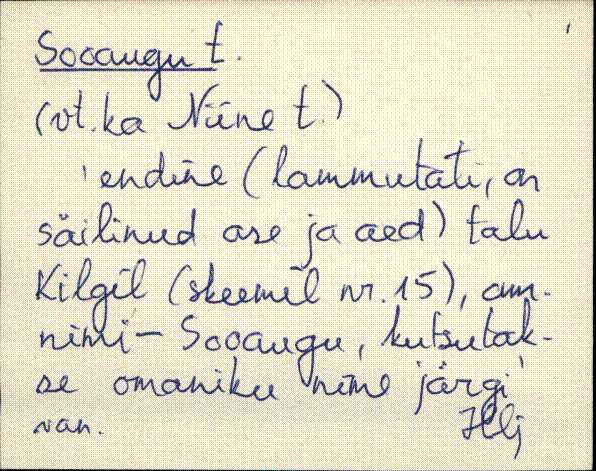 Sooaugu t.
(vt. ka Niine t.)
'endine (lammutati, on
säilinud ase ja aed) talu
Kilgil (skeemil nr. 15), am.
nimi – Sooaugu, kutsutak-
se omaniku nime järgi'
van. Hlj